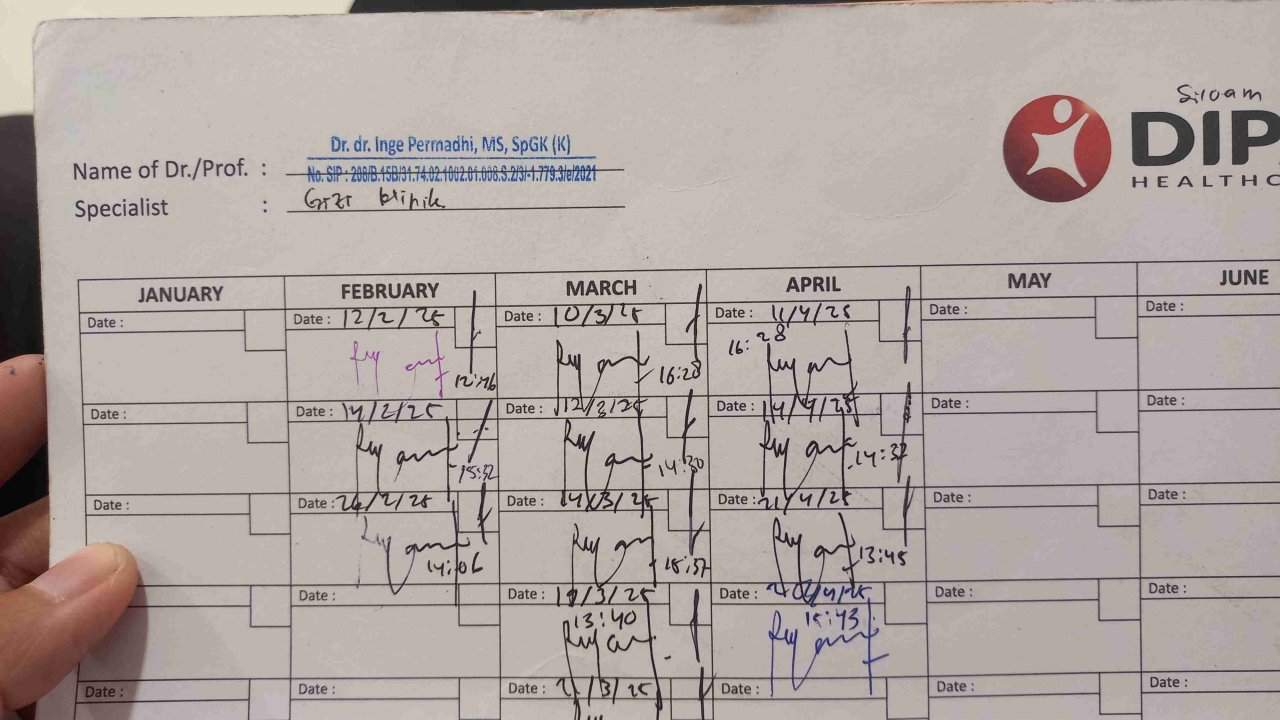 Siloam
DIP
HEALTHC
Name of Dr./Prof. : Dr. dr. Inge Permadhi, MS, SpGK (K)
No. SIP : 208/B.15B/31.74.02.1002.01.008.S.2/3/-1.779.3/e/2021
Specialist : Gizi klinik
JANUARY FEBRUARY MARCH APRIL MAY JUNE
Date : Date : 12/2/25 Date : 10/3/25 Date : 11/4/25 Date : Date :
12:46 16:28 16:28
Date : Date : 14/2/25 Date : 12/3/25 Date : 14/4/25 Date : Date :
15:32 14:30 14:32
Date : Date : 26/2/25 Date : 14/3/25 Date : 21/4/25 Date : Date :
14:06 15:37 13:45
Date : Date : Date : 19/3/25 Date : Date : Date :
13:40 15:43
Date : Date : Date : Date : Date : Date :